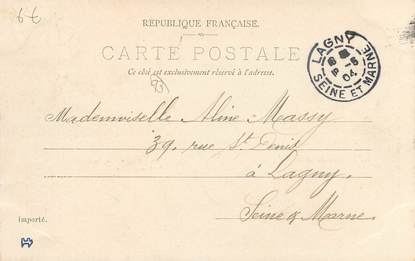 RÉPUBLIQUE FRANÇAISE.
CARTE POSTALE
Ce côté est exclusivement réservé à l'adresse.
LAGNY
5
04
SEINE ET MARNE
Mademoiselle Aline Massy
39, rue St Denis
à Lagny,
Seine & Marne.
importé.